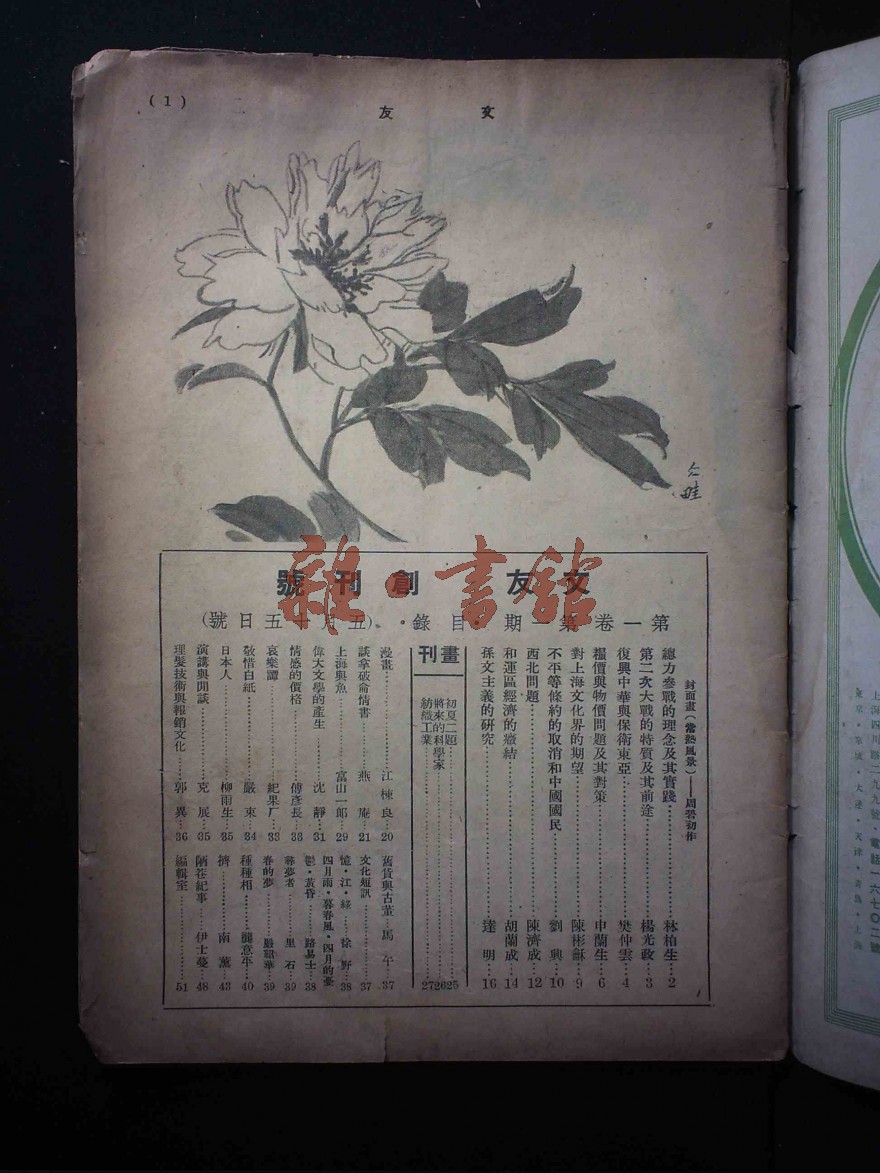 (1)
文　友
文友　創刊號
第一卷第一期・目錄・(五月十五日號)
封面畫（常熟風景）——周碧初作
總力參戰的理念及其實踐……林柏生…2
第二次大戰的特質及其前途……楊光政…3
復興中華與保衛東亞……樊仲雲…4
糧價與物價問題及其對策……申蘭生…6
對上海文化界的期望……陳彬龢…9
不平等條約的取消和中國國民……劉興…10
西北問題……陳濟成…12
和運區經濟的癥結……胡蘭成…14
孫文主義的研究……達明…16
畫刊
初夏二題……25
將來的科學家……26
紡織工業……27
漫畫……江棟良…20
談拿破侖情書……燕庵…21
上海與魚……富山一郎…29
偉大文學的產生……沈靜…31
情感的價格……傅彥長…33
哀樂譚……紀果厂…33
敬惜白紙……嚴東…34
日本人……柳雨生…35
演講與閒談……克展…35
理髮技術與報銷文化……郭異…36
舊貨與古董…馬午…37
文化短訊……37
憶・江・綠…徐野…38
四月雨・暮春風・四月的憂
鬱・黃昏…路易士…38
尋夢者……里石…39
春的夢……39
種種相……龔意平…40
擠……南薰…43
陋巷紀事…伊士蔓…48
編輯室……51
雜・書館
上海四川路二九九號・電話一六七〇二號